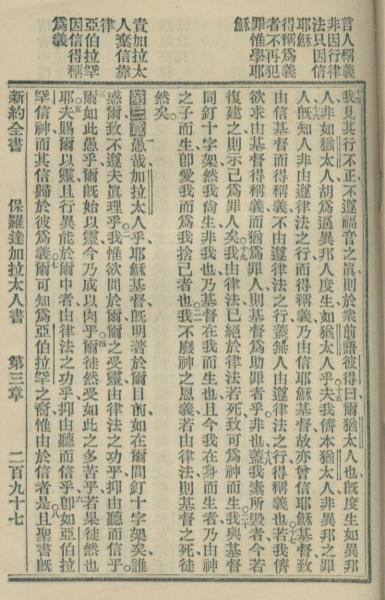 言人稱義
非因行律
法只因信
得稱爲義
者不再犯
罪惟學耶
穌
責加拉太
人棄信靠
律
亞伯拉罕
因信得稱
爲義
十四
我見其行不正不遵福音之眞則於衆前語彼得曰爾猶太人也旣度生如異邦
人非如猶太人胡爲逼異邦人度生如猶太人乎夫我儕本猶太人非異邦之罪
人旣知人非由遵律法之行而得稱義乃由信耶穌基督故亦曾信耶穌基督致
由信基督而得稱義不由遵律法之行蓋無人由遵律法之行得稱義也若我儕
欲求由基督得稱義而猶爲罪人則基督爲助罪者乎非也蓋我素所毀者今若
復建之則示己爲罪人矣我由律法已絕於律法若死致可爲神而生我與基督
同釘十字架然我尚生非我也乃基督在我而生也且今我在身而生者乃由神
之子而生卽愛我而爲我捨己者也我不廢神之恩義若由律法則基督之死徒
然矣
第三章愚哉加拉太人乎耶穌基督旣明著於爾目前如在爾間釘十字架矣誰
惑爾致不遵夫眞理乎我惟欲問於爾爾之受靈由律法之功乎抑由聽而信乎
爾如此愚乎爾旣始以靈今乃成以肉乎爾徒然受如此之多苦乎若果徒然也
耶夫賜爾以靈且行異能於爾中者由律法之功乎抑由聽而信乎卽如亞伯拉
罕信神而其信歸於彼爲義爾可知爲亞伯拉罕之裔惟由於信者是且聖書旣
新約全書 保羅達加拉太人書 第三章 二百九十七